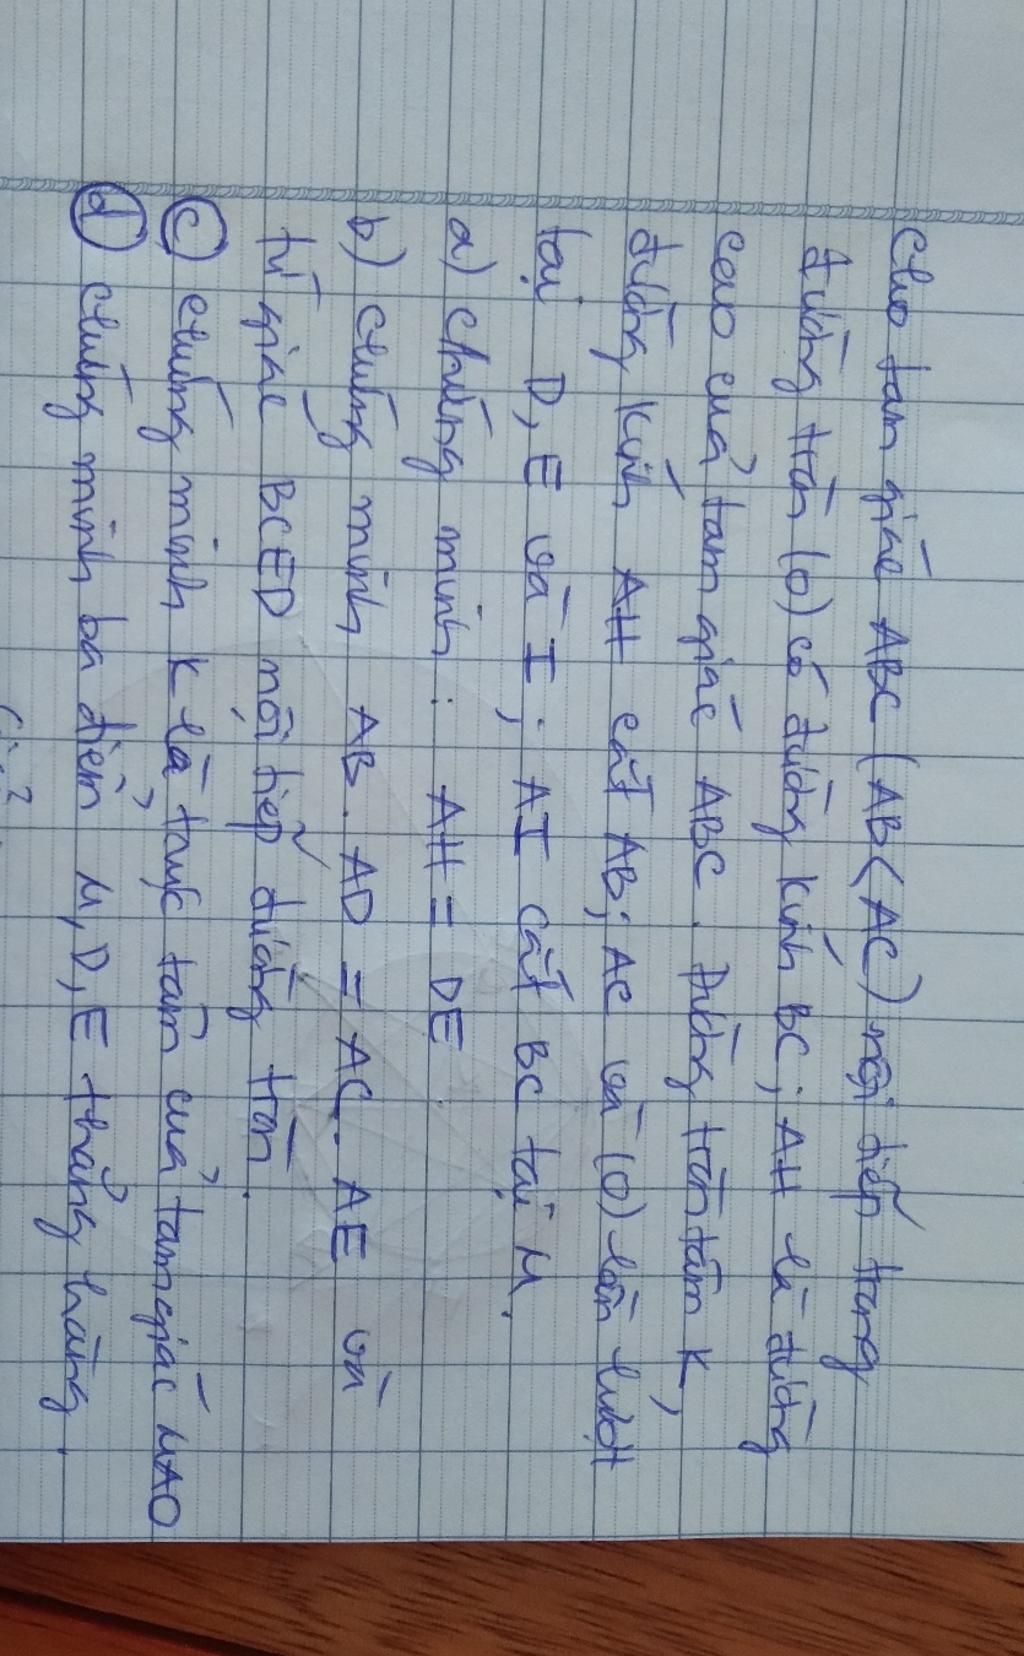 Cho tam giác ABC (AB<AC) nội tiếp trong
đường tròn (O) có đường kính BC; AH là đường
cao của tam giác ABC. Đường tròn tâm K,
đường kính AH cắt AB; AC và (O) lần lượt
tại D, E và I; AI cắt BC tại M.
a) Chứng minh: AH = DE
b) Chứng minh AB. AD = AC. AE và
tứ giác BCED nội tiếp đường tròn.
c) Chứng minh K là trực tâm của tam giác MAO
d) Chứng minh ba điểm M, D, E thẳng hàng.